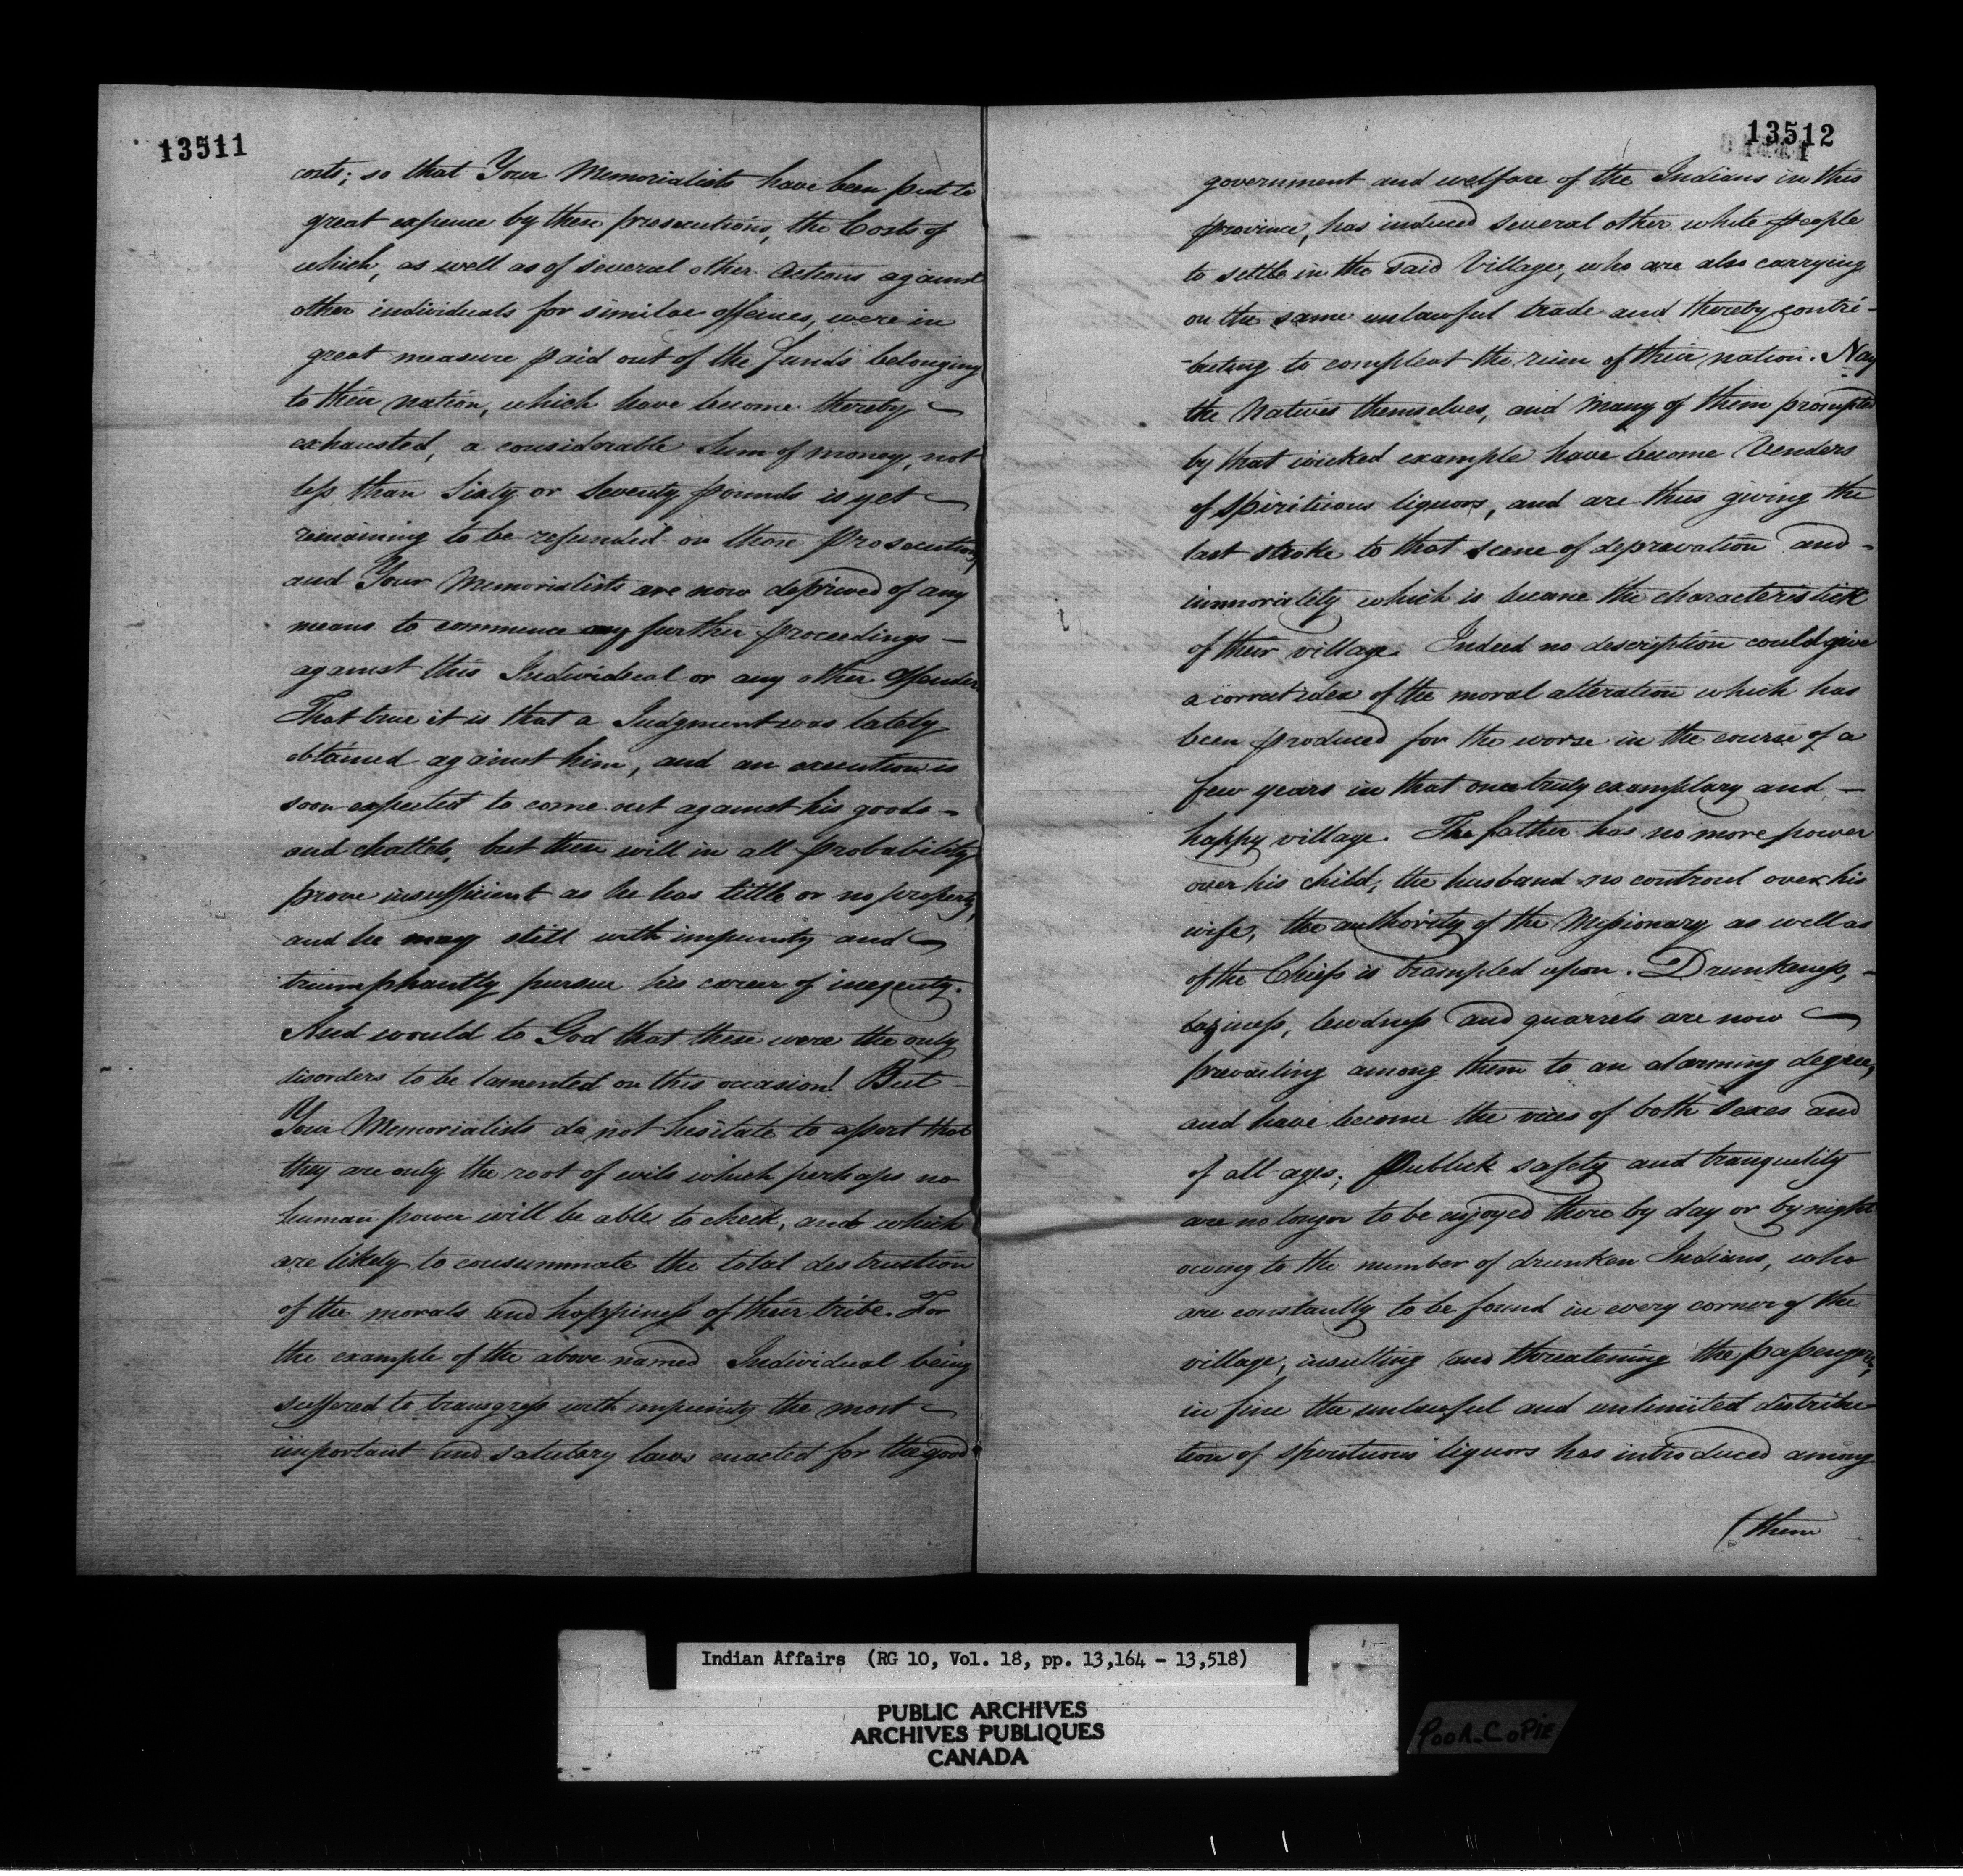 13511
costs; so that Your Memorialists have been put to
great expence by these prosecutions, the Costs of
which, as well as of several other Actions against
other individuals for similar offences, were in
great measure paid out of the funds belonging
to their nation, which have become thereby
exhausted, a considerable Sum of money, not
less than Sixty or Seventy pounds is yet
remaining to be refunded on those Prosecutions,
and Your Memorialists are now deprived of any
means to commence any further proceedings —
against this Individual or any other Offender
That true it is that a Judgment was lately
obtained against him, and an execution is
soon expected to come out against his goods -
and chattels, but these will in all probability
prove insufficient as he has little or no property,
and he may still with impunity and
triumphantly pursue his career of inequity.
And would to God that these were the only
disorders to be lamented on this occasion! But -
Your Memorialists do not hesitate to assert that
they are only the root of evils which perhaps no
human power will be able to check, and which
are likely to consummate the total destruction
of the morals and happiness of their tribe. For
the example of the above named Individual being
suffered to transgress with impunity the most
important and salutary laws enacted for the good
13512
government and welfare of the Indians in this
province, has induced several other white people
to settle in the said Village, who are also carrying
on the same unlawful trade and thereby contri-
-buting to compleat the ruin of their nation. Nay
the Natives themselves, and many of them prompted
by that wicked example have become Venders
of Spirituous liquors, and are thus giving the
last stroke to that scene of depravation and -
immorality which is became the characteristick
of their village. Indeed no description could give
a correct idea of the moral alteration which has
been produced for the worse in the course of a
few years in that once truly examplary and —
happy village. The father has no more power
over his child, the husband no controul over his
wife, the authority of the Missionary as well as
of the Chiefs is trampled upon. Drunkeness, -
laziness, lewdness and quarrels are now
prevailing among them to an alarming degree,
and have become the vices of both Sexes and
of all ages; Publick safety and tranquility
are no longer to be enjoyed there by day or by night
owing to the number of drunken Indians, who
are constantly to be found in every corner of the
village, insulting and threatening the passengers,
in fine the unlawful and unlimited distribu-
tion of spirituous liquors has introduced among
(them
Indian Affairs (RG 10, Vol. 18, pp. 13,164 - 13,518)
PUBLIC ARCHIVES
ARCHIVES PUBLIQUES
CANADA
POOR-COPIE